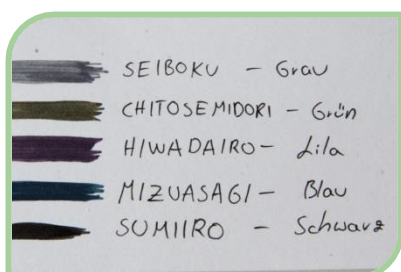 SEIBOKU - Grau
CHITOSEMIDORI - Grün
HIWADAIRO - Lila
MIZUASAGI - Blau
SUMIIRO - Schwarz